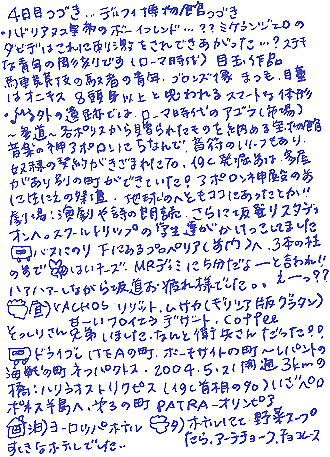 4日目つづき‥デルフィ博物館つづき
・ハドリアヌス皇帝のボーイフレンド…??ミケランジェロの
ダビデはこれに刺激をされてできあがった…?ステキ
な青年の彫刻でありすま(ローマ時代)目玉作品
馬車競技の馭者の青年・ブロンズ像 まつ毛、目玉
はオニキス 8頭身以上と思われるスマートな体形
外の遺跡では、ローマ時代のアゴラ(市場)
〜参道〜各ポリスから贈られたものを納める宝物館
音楽の神アポロンにちなんで 音符のレリーフもあり、
奴隷の契約がきざまれてた。19C発掘前は、多層
があり別の町ができていた?アポロン神殿のあ
地球のへそもココにあったとか!!
劇場:演劇や詩の朗読、さらに坂登りスタディ
オンへ。スクールトリップの学生達がかけっこしてました
バスにのり 下にあるプロペリア(門)へ 3本の柱
の前でハイチーズ、MR.デミに5分だよーと言われ!!
ハァハァーしながら坂道お疲れ様でした。。えーっ??
(昼)VACHOS リゾット、ムサカ(ギリシア版グラタン)
甘ーいプロイエラ デザート、coffee
そっくりさん兄弟しました、なんと衛兵さんだった!?
ドライブ ITEAの町、ボーキサイトの町〜レパントの
海戦の町 ナフパクトス・2004.5.21開通3kmの
橋:ハリラオストリクピス(19C首相の名)でペロ
ポネソス半島へ、第3の町 PATRA-オリンピア
(泊)ヨーロッパホテル (夕)ホテルにて 野菜スープ
すてきなホテルでした‥ たら、アーティチョーク、チョコムース